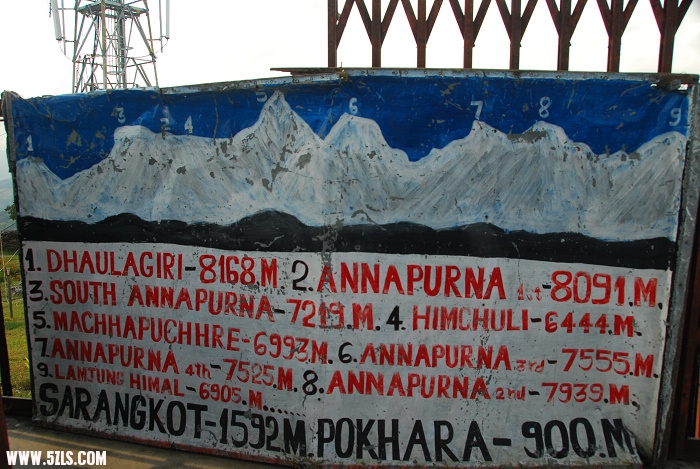 1 3 4 5 6 7 8 9
1. DHAULAGIRI-8168.M. 2. ANNAPURNA 1st-8091.M.
3. SOUTH ANNAPURNA-7219.M. 4. HIMCHULI-6444.M.
5. MACHHAPUCHHRE-6993M. 6. ANNAPURNA 3rd-7555.M.
7. ANNAPURNA 4th-7525.M. 8. ANNAPURNA 2nd-7939.M.
9. LAMJUNG HIMAL-6905.M.......
SARANGKOT-1592M. POKHARA-900.M.
WWW.5ZLS.COM